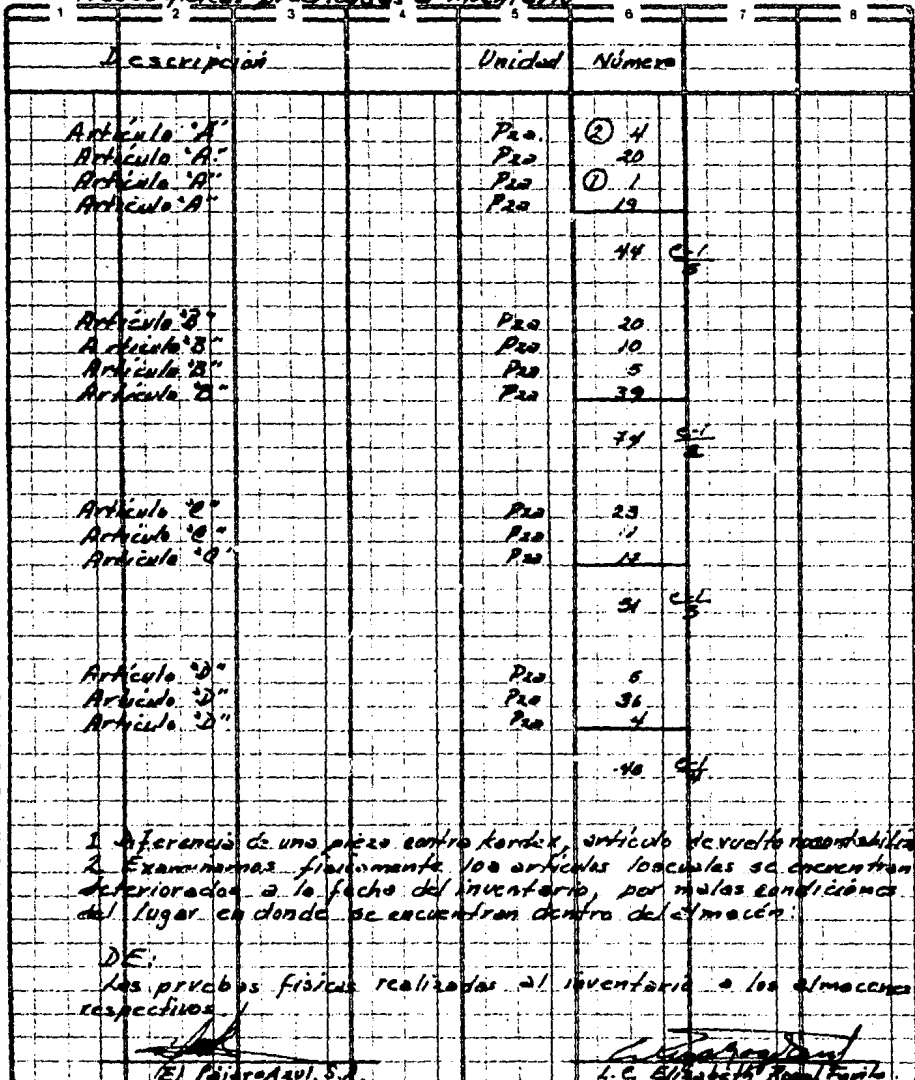 Pruebas físicas practicadas a inventario
1 2 3 4 5 6 7 8
Descripción Unidad Número
Artículo "A" Pza. ② 4
Artículo "A" Pza 20
Artículo "A" Pza ① 1
Artículo "A" Pza 19
44 c-1
Artículo "B" Pza 20
Artículo "B" Pza 10
Artículo "B" Pza 5
Artículo "B" Pza 39
74 c-1
Artículo "C" Pza 23
Artículo "C" Pza 11
Artículo "C" Pza
51 c-1
Artículo "D" Pza 6
Artículo "D" Pza 36
Artículo "D" Pza 4
46 c-1
1 Diferencia de una pieza contra kardex, artículo devuelto
2 Examinamos físicamente los artículos los cuales se encuentran
deteriorados a la fecha del inventario, por malas condiciones
del lugar en donde se encuentran dentro del almacén.
DE:
Las pruebas físicas realizadas al inventario a los almacenes
respectivos
El Pájaro Azul, S.A. L.C. Elizabeth